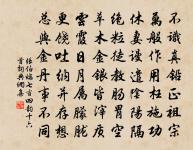 不識真鉛正祖宗
萬般作用枉施功
休妻謾遣陰陽隔
絕粒徒教腸胃空
草木金銀皆滓質
雲霞日月屬朦朧
更饒吐納并存想
總與金丹事不同
張伯端七言四韵十六
首詞典網